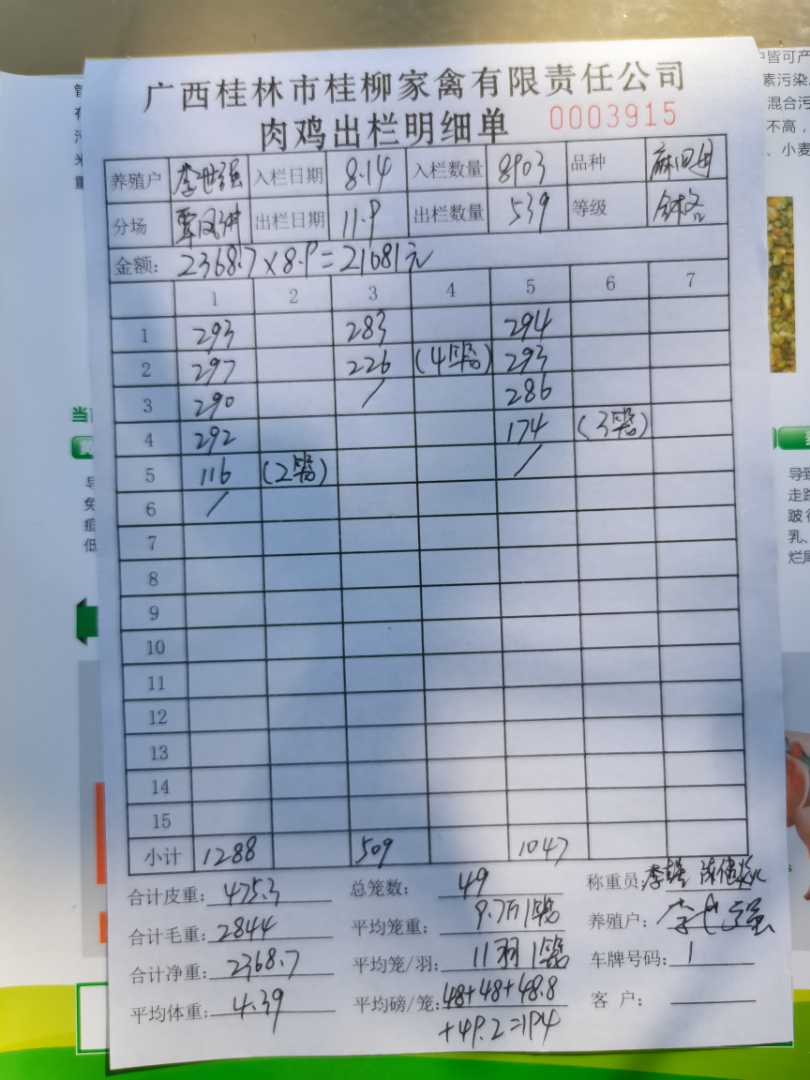 广西桂林市桂柳家禽有限责任公司
肉鸡出栏明细单 0003915
养殖户 李世强 入栏日期 8.14 入栏数量 8903 品种
分场 覃凤讲 出栏日期 11.9 出栏数量 539 等级
金额: 2368.7×8.9=21081元
1 2 3 4 5 6 7
1 293 283 294
2 297 226 (4笼) 293
3 290 / 286
4 292 174 (3笼)
5 116 (2笼) /
6 /
7
8
9
10
11
12
13
14
15
小计 1288 509 1047
合计皮重: 475.3 总笼数: 49 称重员:
合计毛重: 2844 平均笼重: 9.7斤1笼 养殖户: 李世强
合计净重: 2368.7 平均笼/羽: 11羽1笼 车牌号码: 1
平均体重: 4.39 平均磅/笼: 48+48+48.8 客户:
+49.2=194
当
导
免
疸
低
户皆可产
素污染
混合污
不高,
、小麦
导致
走路
跛行
乳、
烂尾